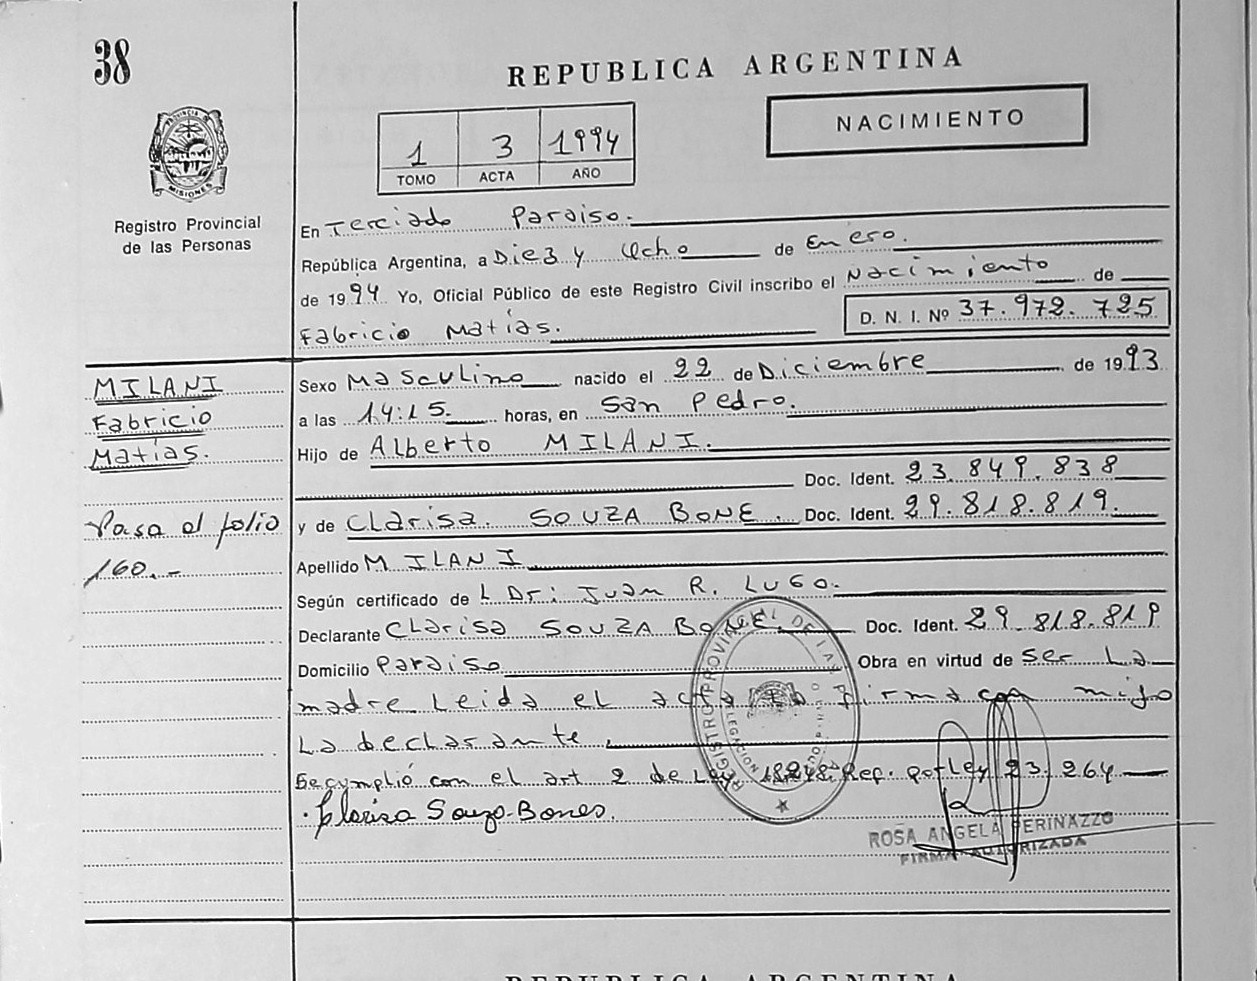 38
REPUBLICA ARGENTINA
NACIMIENTO
1 3 1994
TOMO ACTA AÑO
PROVINCIA DE MISIONES
Registro Provincial
de las Personas
En Terciado Paraiso.
República Argentina, a Diez y Ocho de Enero.
de 1994 Yo, Oficial Público de este Registro Civil inscribo el Nacimiento de
Fabricio Matías.
D. N. I. Nº 37.972.725
MILANI
Fabricio
Matías.
Pasa al folio
160.-
Sexo Masculino nacido el 22 de Diciembre de 1993
a las 14:15 horas, en San Pedro.
Hijo de Alberto MILANI.
Doc. Ident. 23.849.838
y de Clarisa SOUZA BONE. Doc. Ident. 29.818.819.
Apellido MILANI
Según certificado de L Dr: Juan R. Lugo.
Declarante Clarisa SOUZA BONE. Doc. Ident. 29.818.819
Domicilio Paraiso Obra en virtud de ser La
madre Leida el acta la firma con migo
La declarante.
Se cumplió con el art 2 de Ley 18248. Rep. por Ley 23.264
Clarisa Souza Bones.
REGISTRO PROVINCIAL DE LAS
DELEGACION
ROSA ANGELA PERINAZZO
FIRMA AUTORIZADA
REPUBLICA ARGENTINA